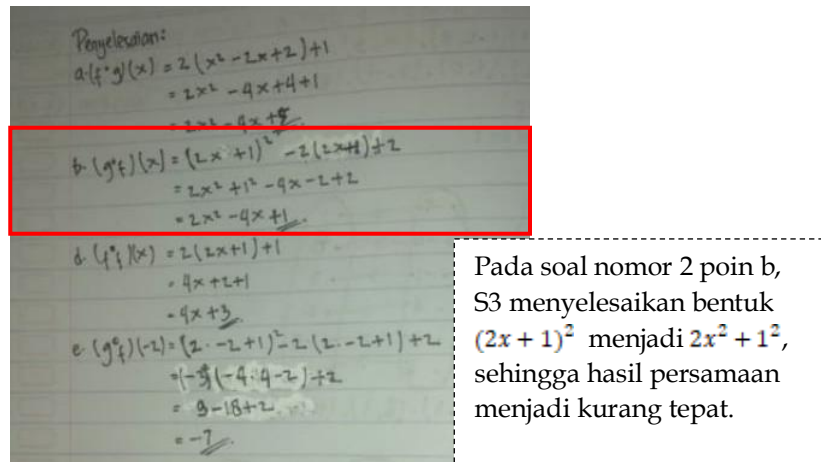 Penyelesaian:
a. (f∘g)(x) = 2(x² - 2x + 2) + 1
= 2x² - 4x + 4 + 1
= 2x² - 4x + 5
b. (g∘f)(x) = (2x + 1)² - 2(2x+1) + 2
= 2x² + 1² - 4x - 2 + 2
= 2x² - 4x + 1
d. (f∘f)(x) = 2(2x+1) + 1
= 4x + 2 + 1
= 4x + 3
e. (g∘f)(-2) = (2 . -2 + 1)² - 2(2 . -2 + 1) + 2
+2
= 9 - 18 + 2
= -7
Pada soal nomor 2 poin b,
S3 menyelesaikan bentuk
(2x + 1)² menjadi 2x² + 1²,
sehingga hasil persamaan
menjadi kurang tepat.